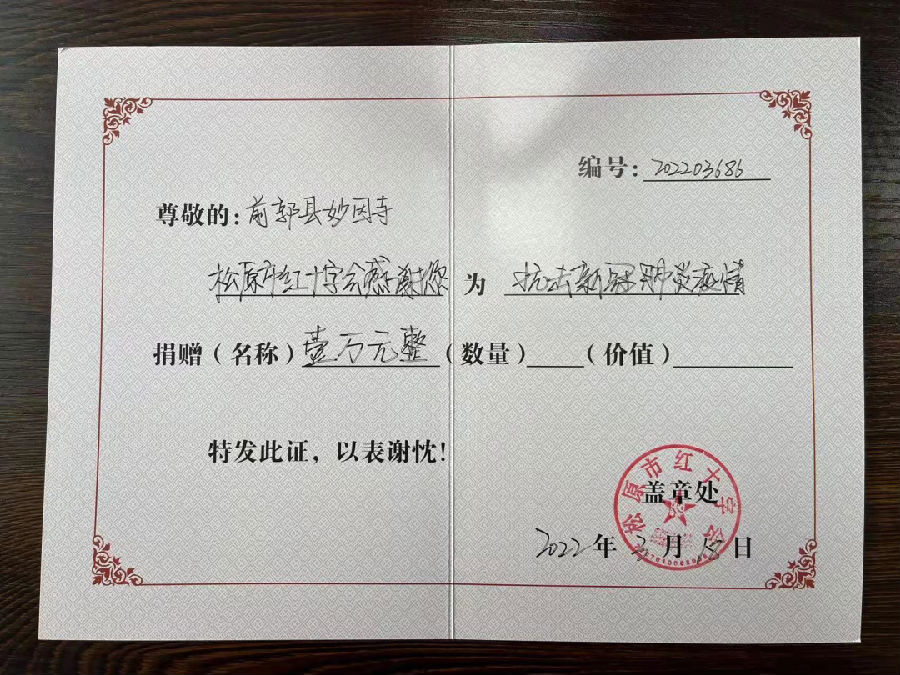 编号：202203686
尊敬的：前郭县妙因寺
松原市红十字会感谢您 为 抗击新冠肺炎疫情
捐赠（名称）壹万元整（数量）（价值）
特发此证，以表谢忱！
松原市红十字会
盖章处
2022年3月15日